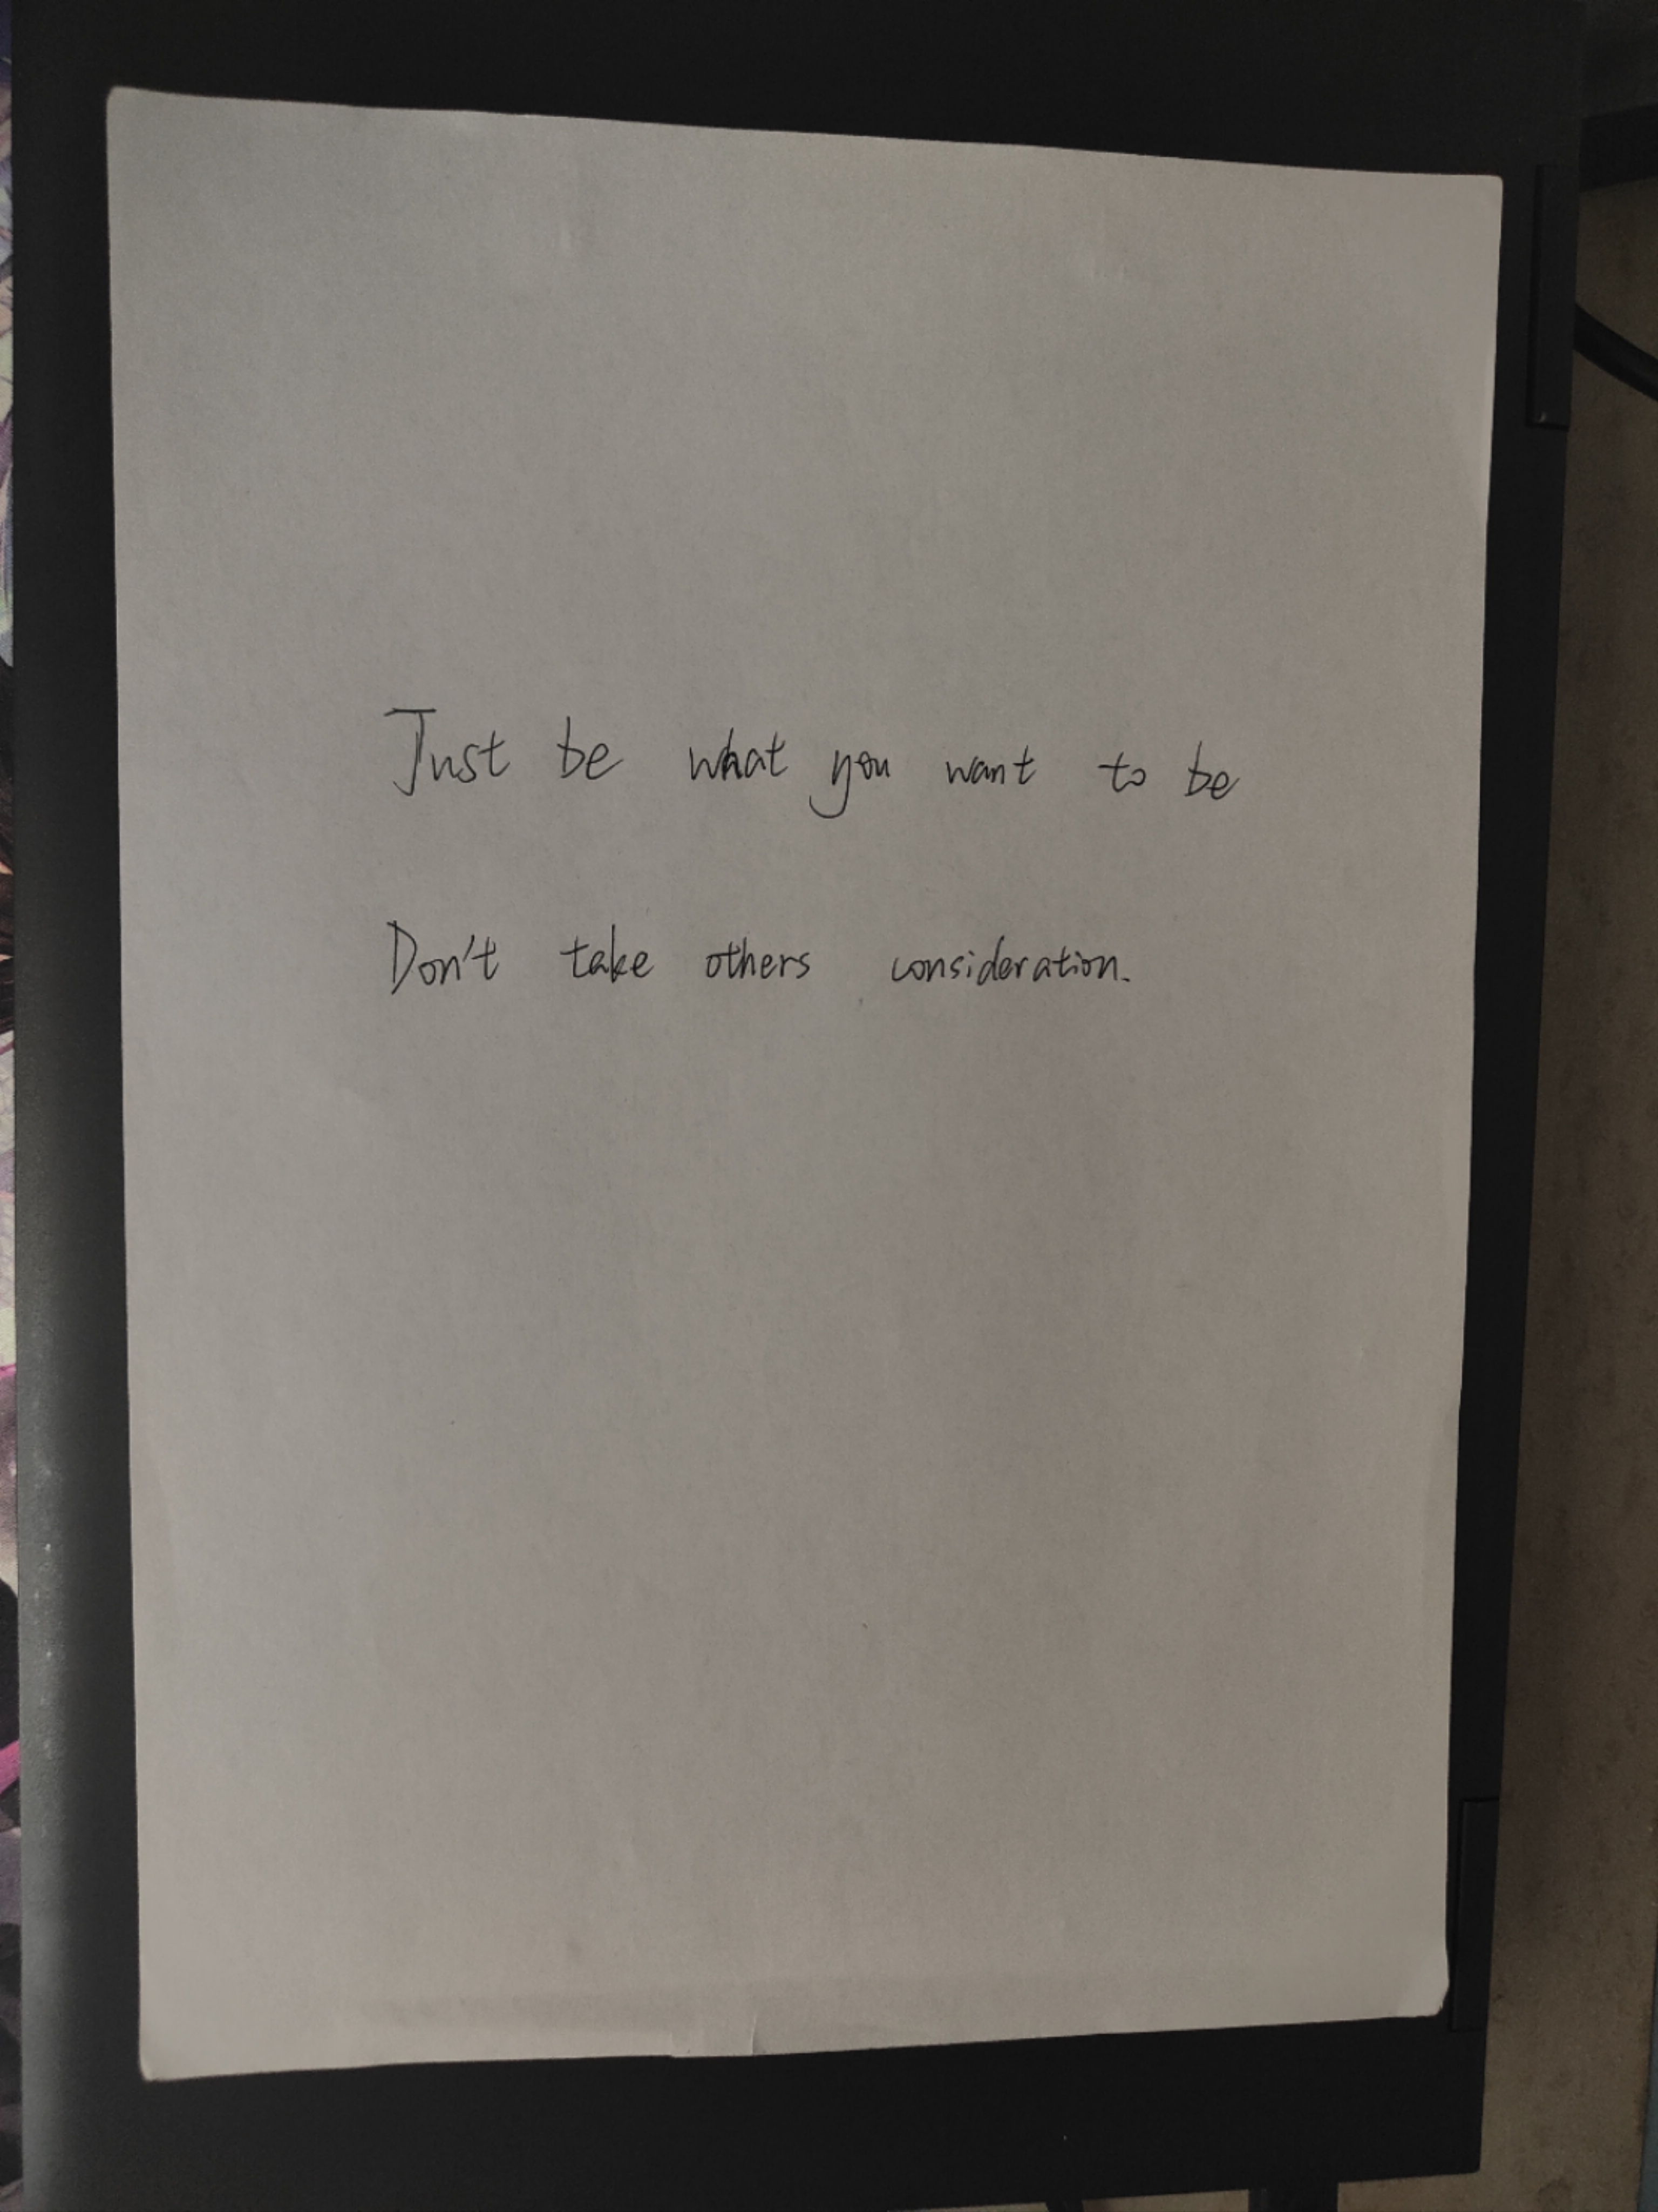 Just be what you want to be
Don't take others consideration.